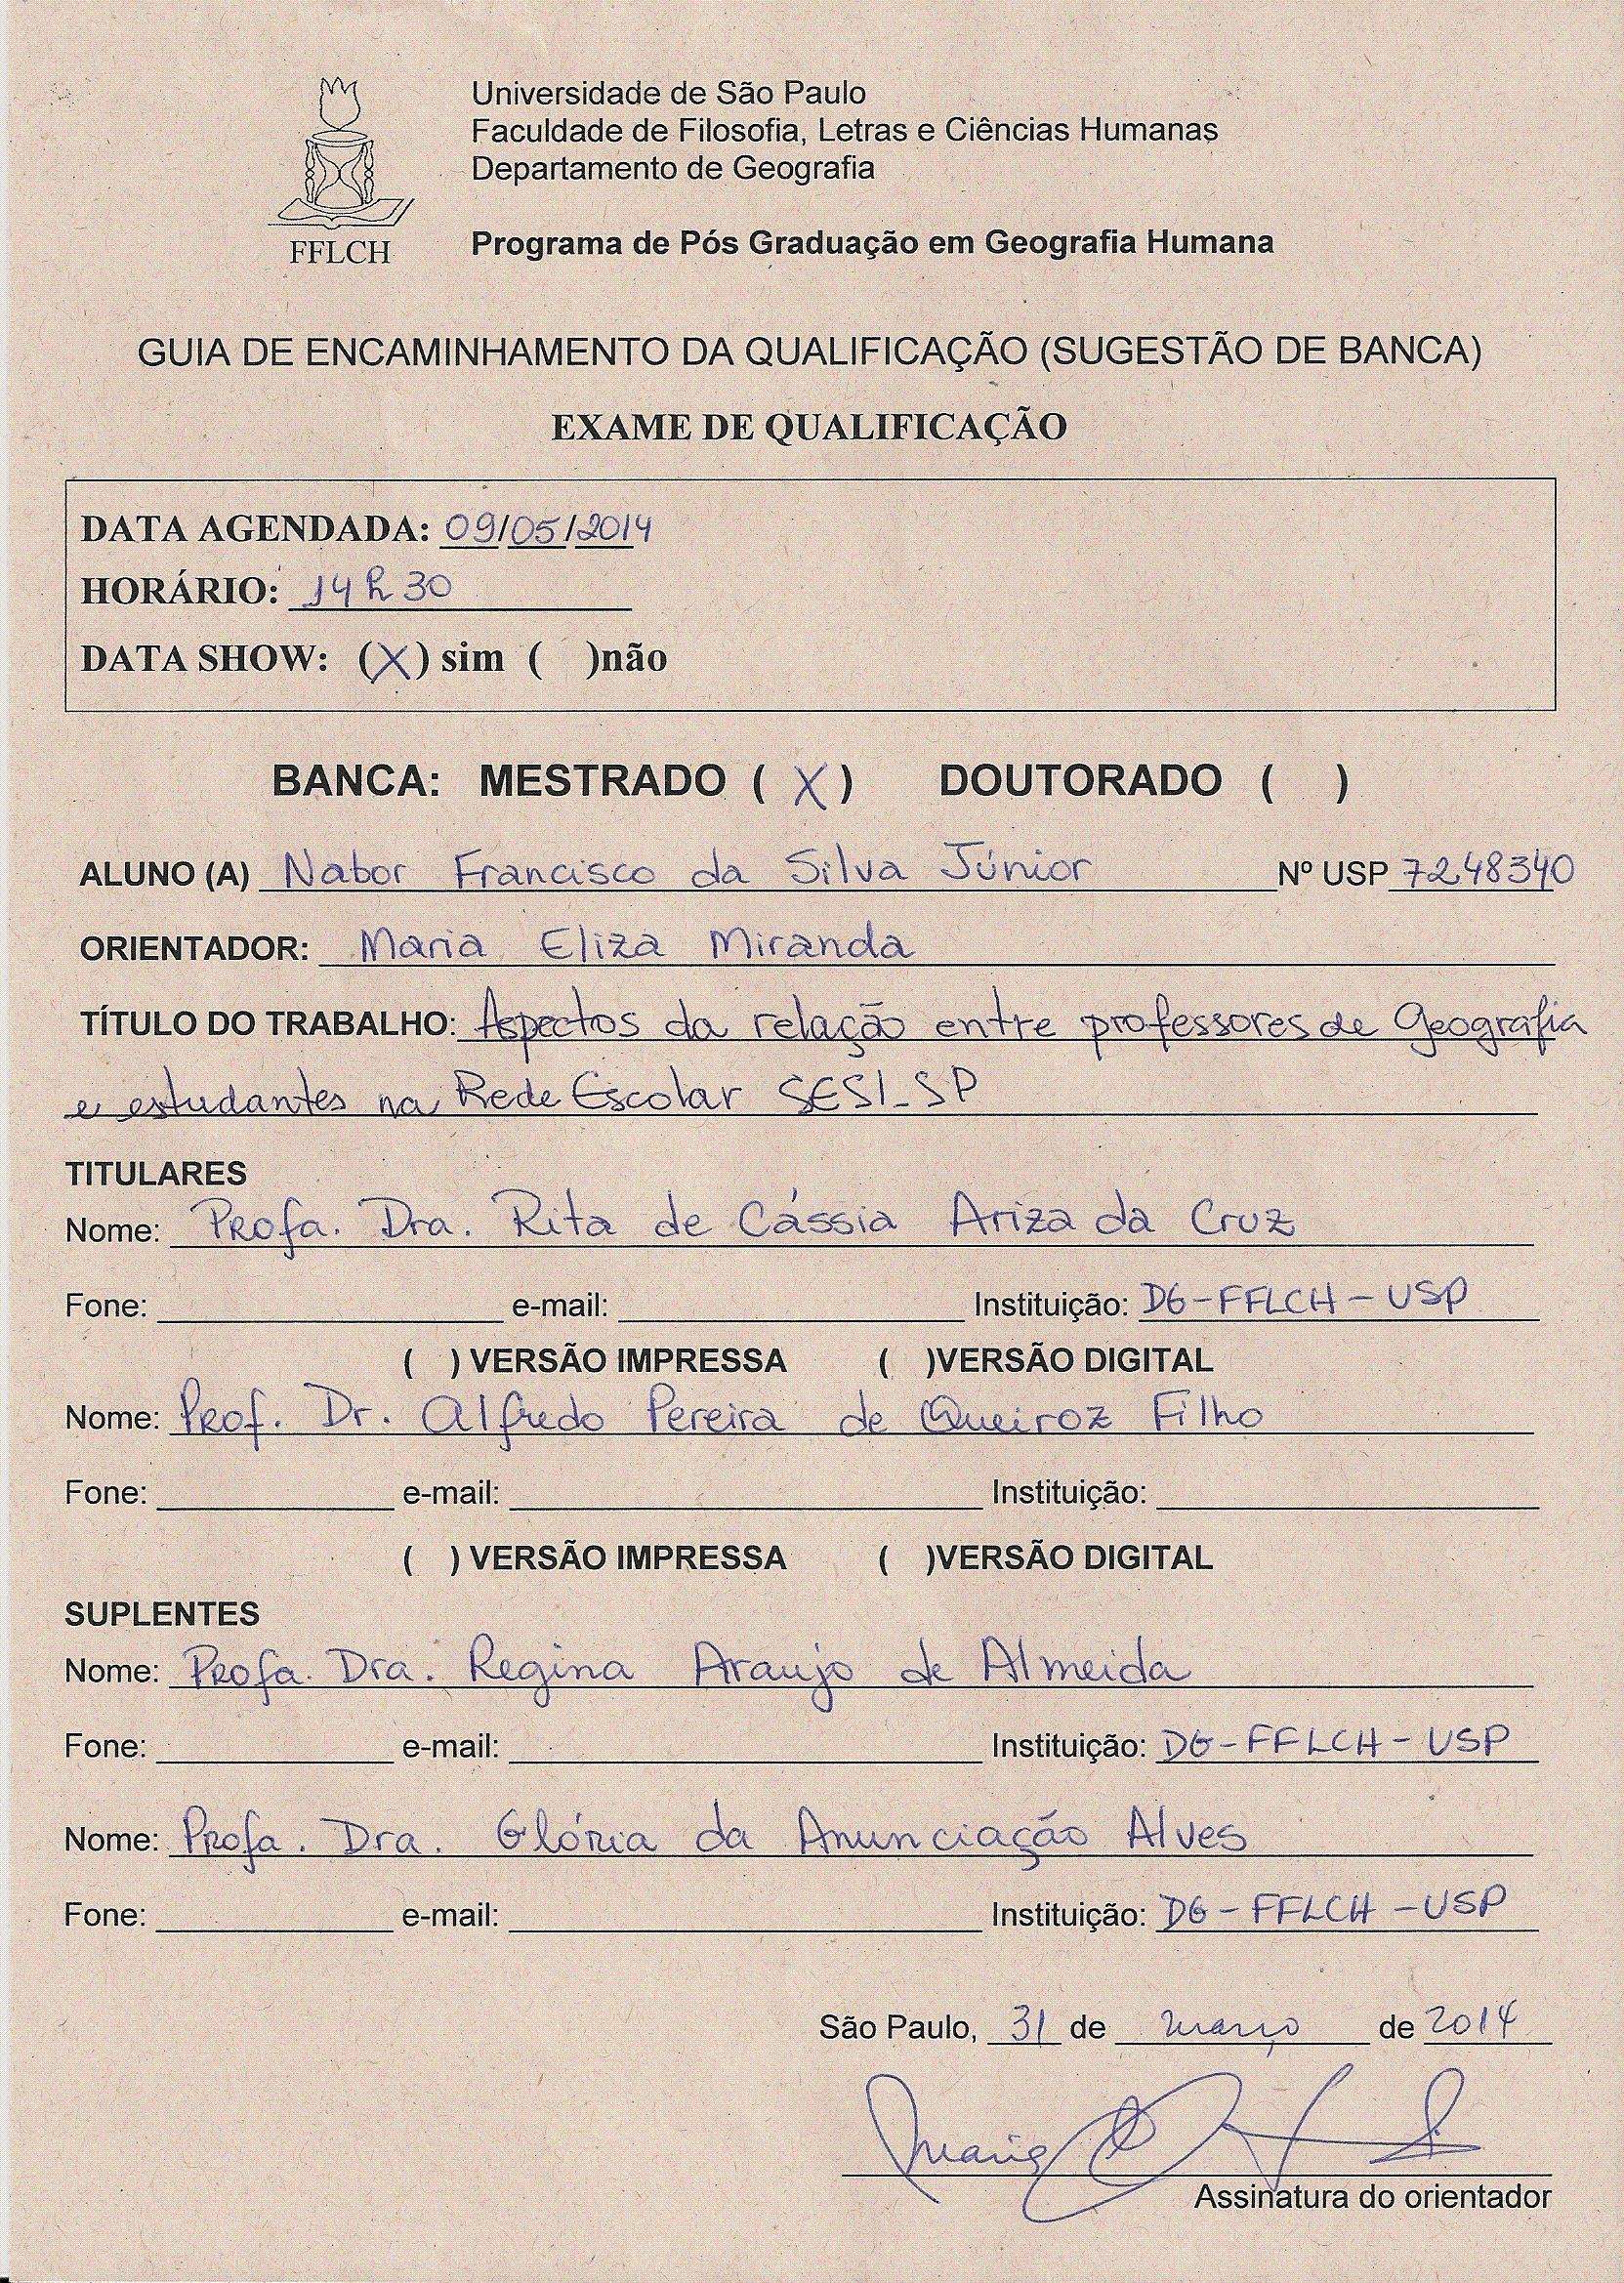 Universidade de São Paulo
Faculdade de Filosofia, Letras e Ciências Humanas
Departamento de Geografia
FFLCH
Programa de Pós Graduação em Geografia Humana
GUIA DE ENCAMINHAMENTO DA QUALIFICAÇÃO (SUGESTÃO DE BANCA)
EXAME DE QUALIFICAÇÃO
DATA AGENDADA: 09/05/2014
HORÁRIO: 14 h 30
DATA SHOW: (X) sim ( )não
BANCA: MESTRADO ( X ) DOUTORADO ( )
ALUNO (A) Nabor Francisco da Silva Júnior Nº USP 7248340
ORIENTADOR: Maria Eliza Miranda
TÍTULO DO TRABALHO: Aspectos da relação entre professores de Geografia
e estudantes na Rede Escolar SESI-SP
TITULARES
Nome: Profa. Dra. Rita de Cássia Ariza da Cruz
Fone: e-mail: Instituição: DG-FFLCH-USP
( ) VERSÃO IMPRESSA ( )VERSÃO DIGITAL
Nome: Prof. Dr. Alfredo Pereira de Queiroz Filho
Fone: e-mail: Instituição:
( ) VERSÃO IMPRESSA ( )VERSÃO DIGITAL
SUPLENTES
Nome: Profa. Dra. Regina Araujo de Almeida
Fone: e-mail: Instituição: DG-FFLCH-USP
Nome: Profa. Dra. Glória da Anunciação Alves
Fone: e-mail: Instituição: DG-FFLCH-USP
São Paulo, 31 de março de 2014
Maria
Assinatura do orientador